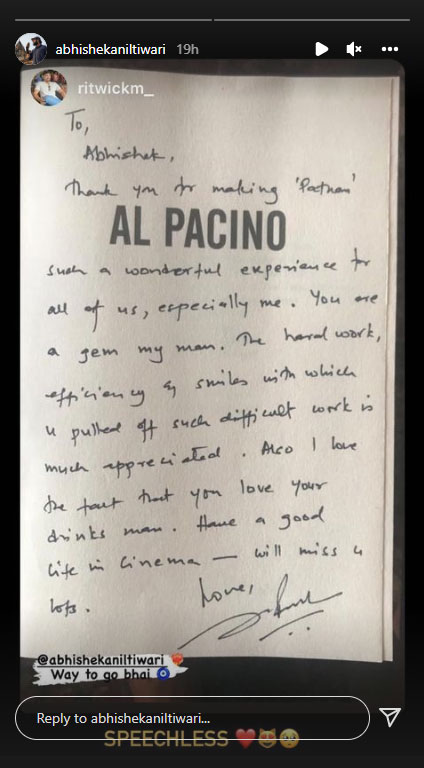 abhishekaniltiwari 19h
ritwickm_
To,
Abhishek,
Thank you for making 'Pathaan'
AL PACINO
such a wonderful experience for
all of us, especially me. You are
a gem my man. The hard work,
efficiency & smiles with which
u pulled off such difficult work is
much appreciated. Also I love
the fact that you love your
drinks man. Have a good
life in Cinema — will miss u
lots.
Love,
@abhishekaniltiwari
Way to go bhai
Reply to abhishekaniltiwari...
SPEECHLESS